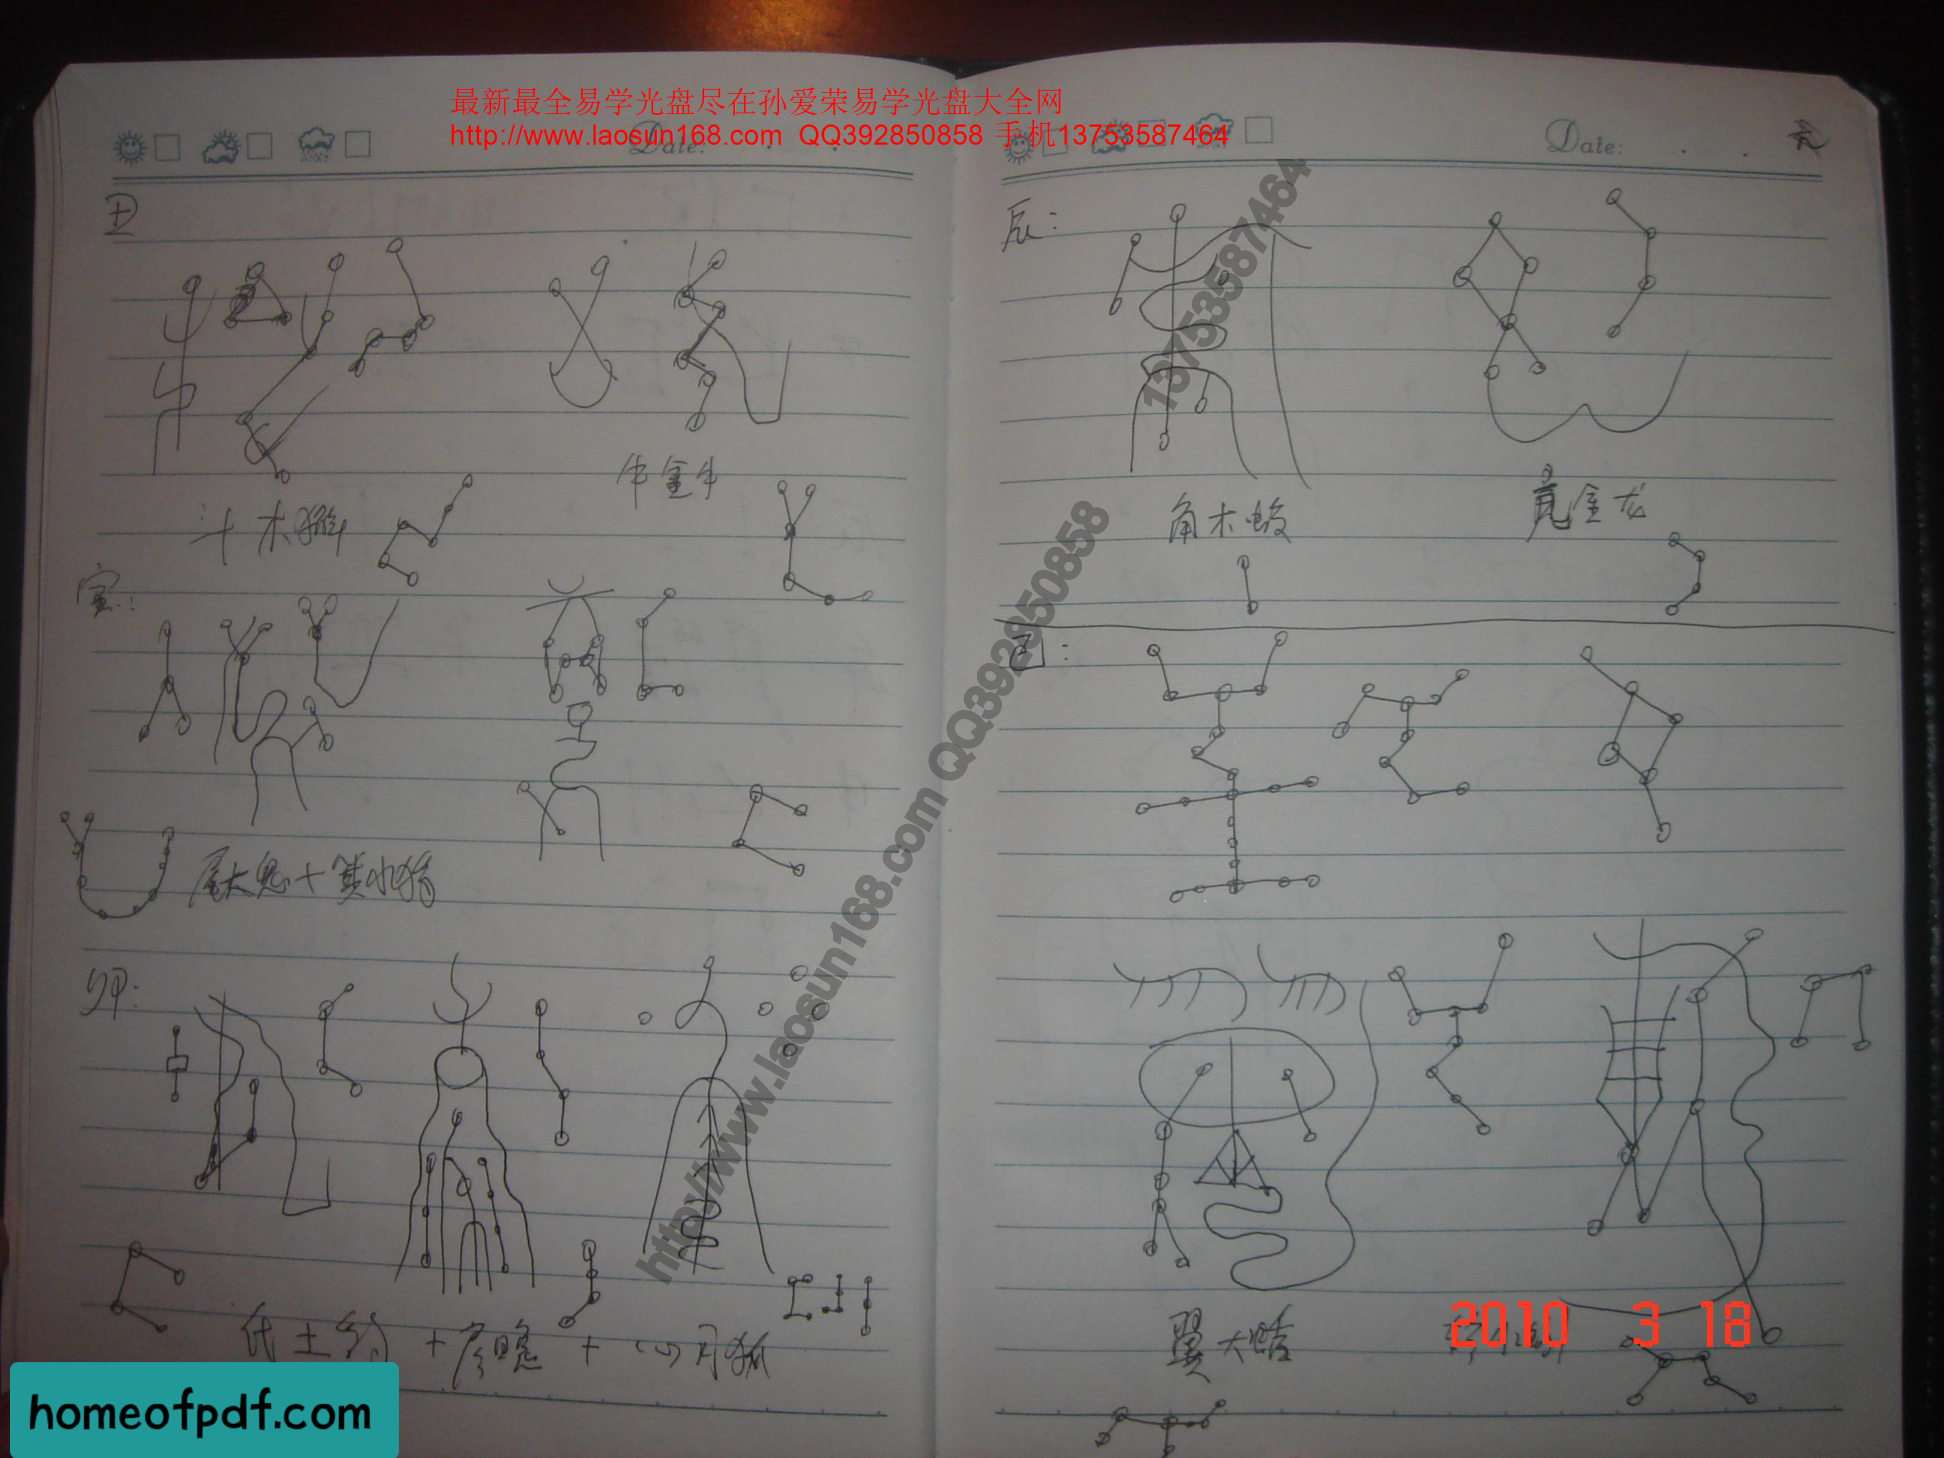 最新最全易学光盘尽在孙爱荣易学光盘大全网
http://www.laosun168.com QQ392850858 手机13753587464
Date:
丑
牛金牛
斗木獬
寅:
尾火兔+箕水豹
卯:
氐土
+ 心月狐
Date:
辰:
角木蛟
亢金龙
巳:
翼火蛇
2010 3 18
http://www.laosun168.com QQ392850858 13753587464
homeofpdf.com